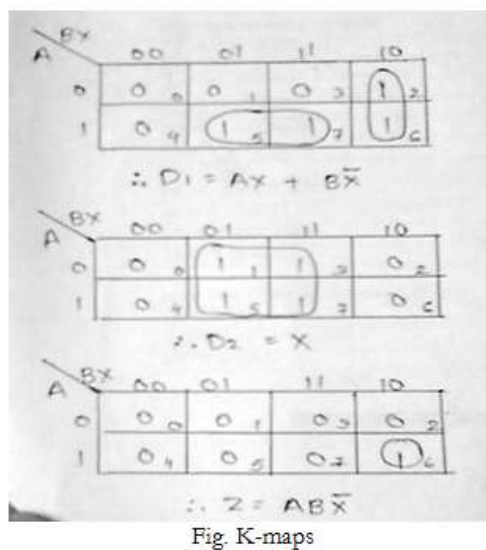 BX
A 00 01 11 10
0 0 0 0 1 0 3 1 2
1 0 4 1 5 1 7 1 6
∴ D1 = AX + BX̄
BX
A 00 01 11 10
0 0 0 1 1 1 3 0 2
1 0 4 1 5 1 7 0 6
∴ D2 = X
BX
A 00 01 11 10
0 0 0 0 1 0 3 0 2
1 0 4 0 5 0 7 1 6
∴ Z = ABX̄
Fig. K-maps